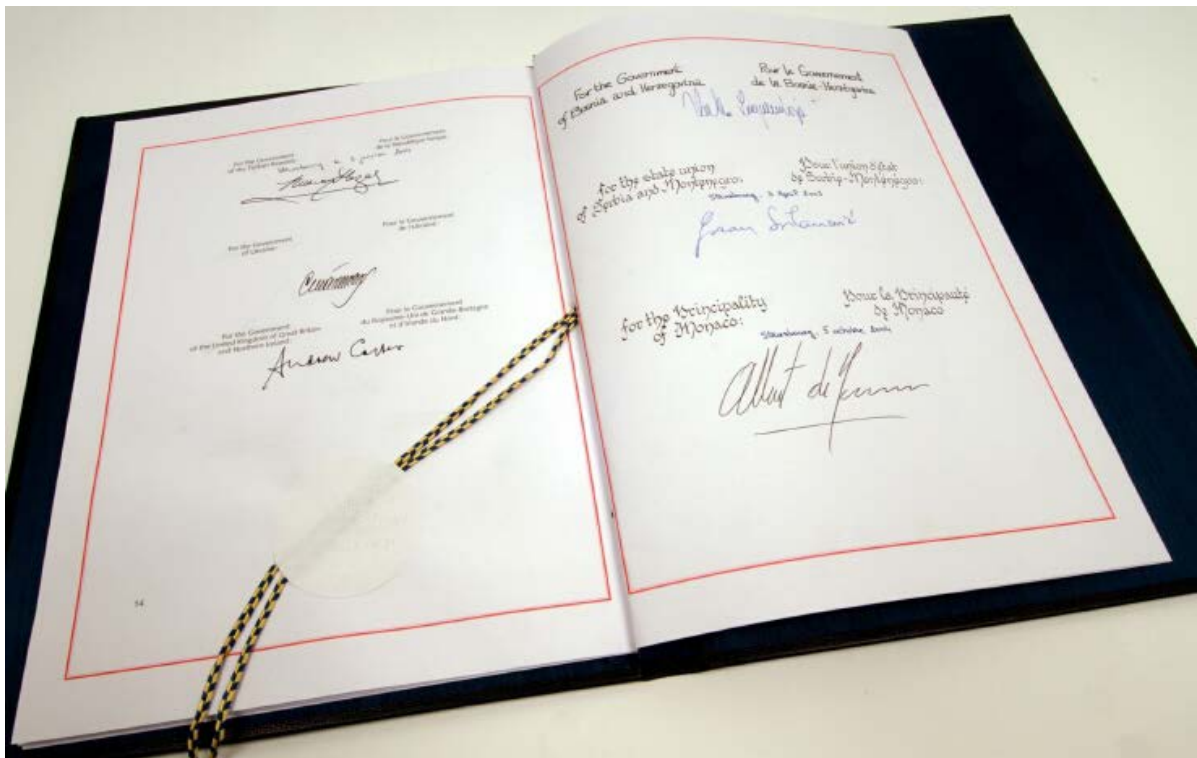 For the Government
of the Turkish Republic:
Pour le Gouvernement
de la République turque:
Strasbourg
For the Government
of Ukraine:
Pour le Gouvernement
de l'Ukraine:
For the Government
of the United Kingdom of Great Britain
and Northern Ireland:
Pour le Gouvernement
du Royaume-Uni de Grande-Bretagne
et d'Irlande du Nord:
Andrew
14
For the Government
of Bosnia and Herzegovina
Pour le Gouvernement
de la Bosnie-Herzégovine
for the state union
of Serbia and Montenegro:
Pour l'union d'état
de Serbie-Monténégro:
Strasbourg, 3 April 2003
Goran
for the Principality
of Monaco:
Pour la Principauté
de Monaco
Strasbourg, 5 octobre 2004
Albert de